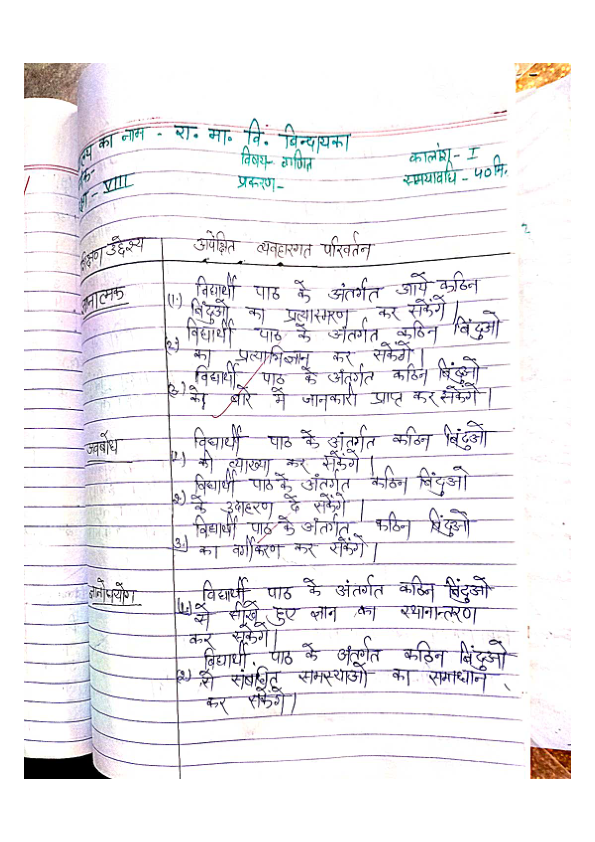 का नाम - रा. मा. वि. बिन्दायका
विषय - गणित कालांश - I
VIII प्रकरण- समयावधि - 40 मि.
उद्देश्य अपेक्षित व्यवहारगत परिवर्तन
विद्यार्थी पाठ के अंतर्गत आये कठिन
(1.) बिंदुओ का प्रत्यास्मरण कर सकेंगे।
विद्यार्थी पाठ के अंतर्गत कठिन बिंदुओ
(2.) का प्रत्याभिज्ञान कर सकेंगे।
विद्यार्थी पाठ के अंतर्गत कठिन बिंदुओ
(3.) के बारे में जानकारी प्राप्त कर सकेंगे।
अवबोध विद्यार्थी पाठ के अंतर्गत कठिन बिंदुओ
(1.) की व्याख्या कर सकेंगे।
विद्यार्थी पाठ के अंतर्गत कठिन बिंदुओ
2.) के उदाहरण दे सकेंगे।
विद्यार्थी पाठ के अंतर्गत कठिन बिंदुओ
3.) का वर्गीकरण कर सकेंगे।
ज्ञानोपयोग विद्यार्थी पाठ के अंतर्गत कठिन बिंदुओ
(1.) से सीखे हुए ज्ञान का स्थानान्तरण
कर सकेंगे।
विद्यार्थी पाठ के अंतर्गत कठिन बिंदुओ
2.) से संबंधित समस्याओ का समाधान
कर सकेंगे।